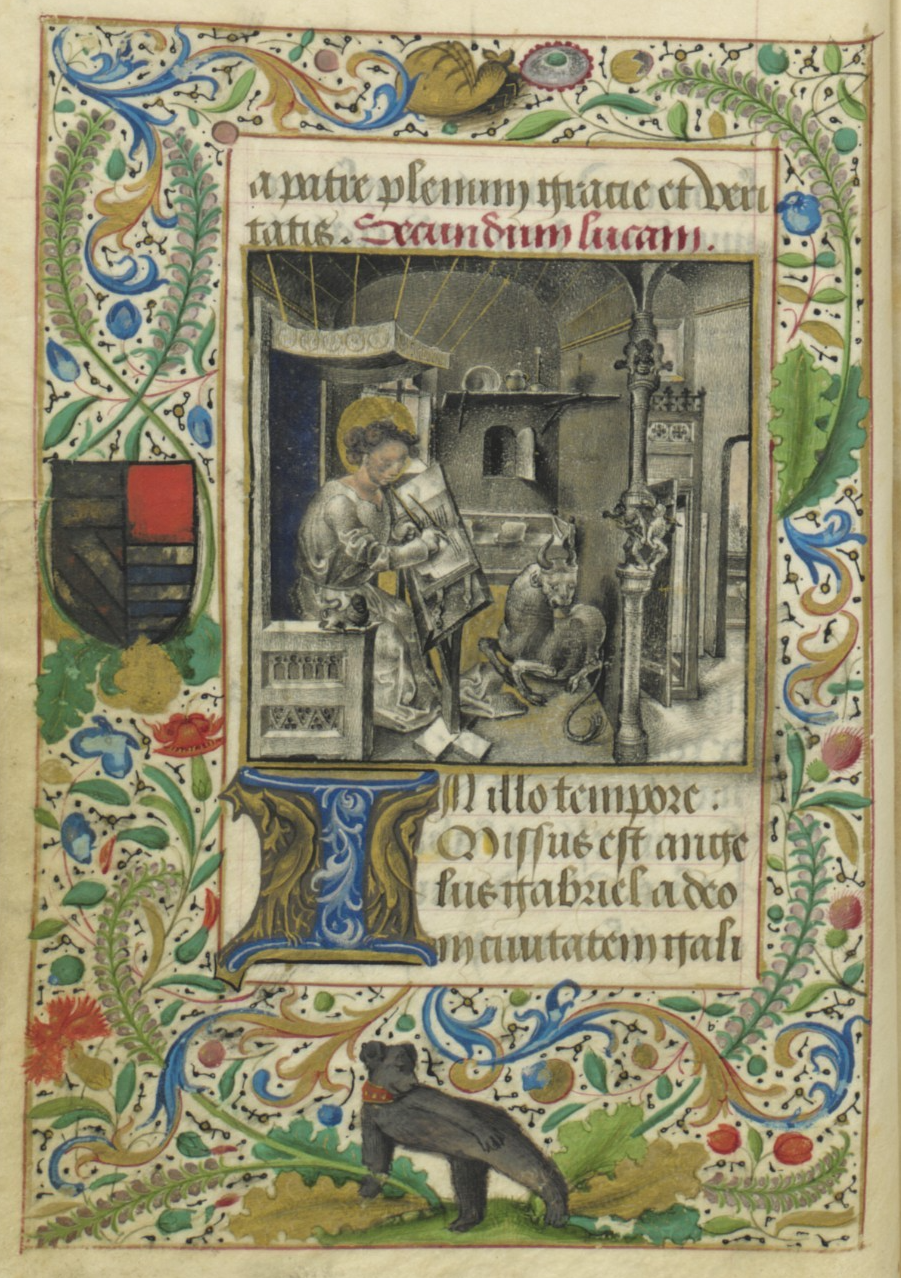 a patre plenum gracie et veri
tatis. Secundum lucam.
IN illo tempore:
Missus est ange
lus gabriel a deo
in ciuitatem gali